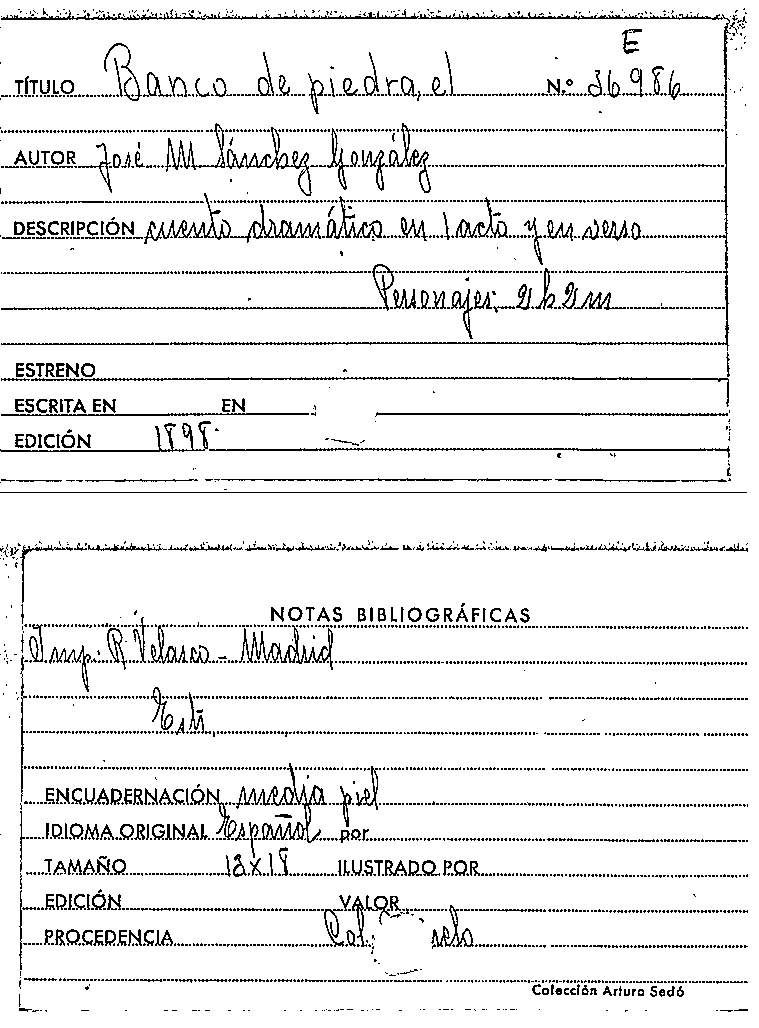 E
TÍTULO Banco de piedra, el N.º 36986
AUTOR José M Sánchez González
DESCRIPCIÓN cuento dramático en 1 acto y en verso
Personajes: 2 h 2 m
ESTRENO
ESCRITA EN EN
EDICIÓN 1898
NOTAS BIBLIOGRÁFICAS
Imp. R Velasco - Madrid
ENCUADERNACIÓN media piel
IDIOMA ORIGINAL Español por
TAMAÑO ILUSTRADO POR
EDICIÓN VALOR
PROCEDENCIA Col.
Colección Arturo Sedó